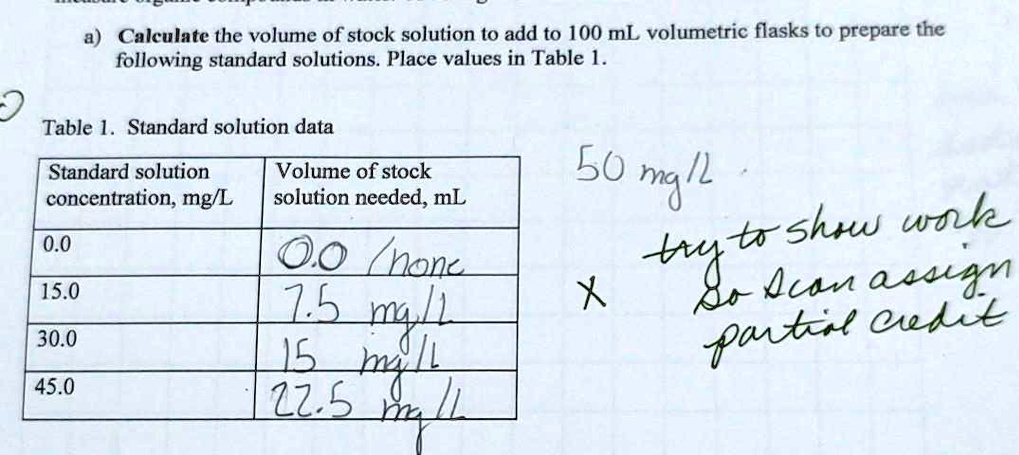 a) Calculate the volume of stock solution to add to 100 mL volumetric flasks to prepare the
following standard solutions. Place values in Table 1.
Table 1. Standard solution data
Standard solution concentration, mg/L
Volume of stock solution needed, mL
0.0
0.0 / none
15.0
7.5 mg/L
30.0
15 mg/L
45.0
22.5 mg/L
50 mg/L
try to show work
x So I can assign
partial credit